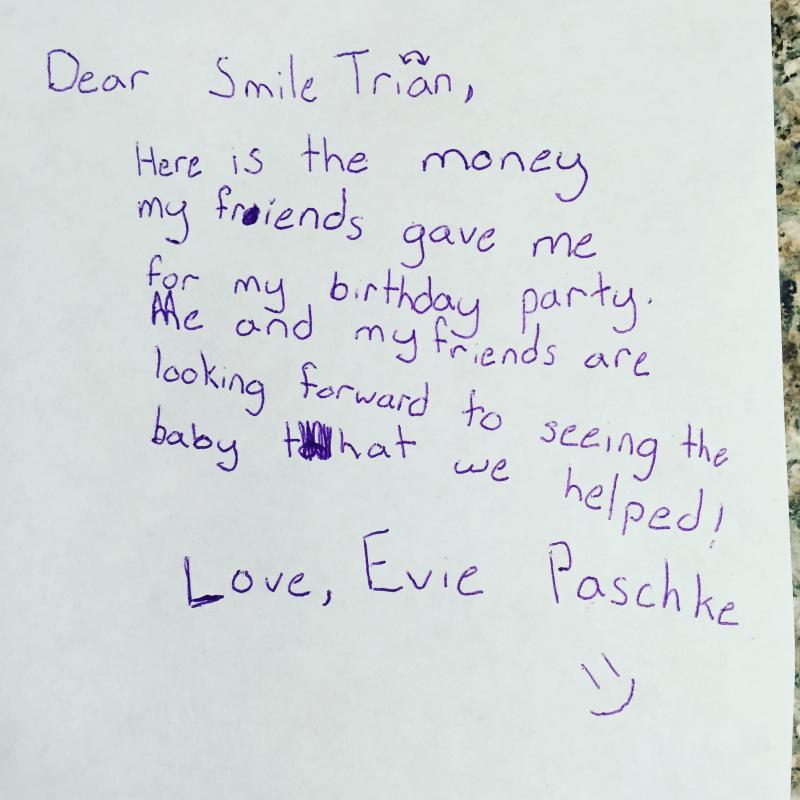 Dear Smile Trian,
Here is the money
my friends gave me
for my birthday party.
Me and my friends are
looking forward to seeing the
baby that we helped!
Love, Evie Paschke